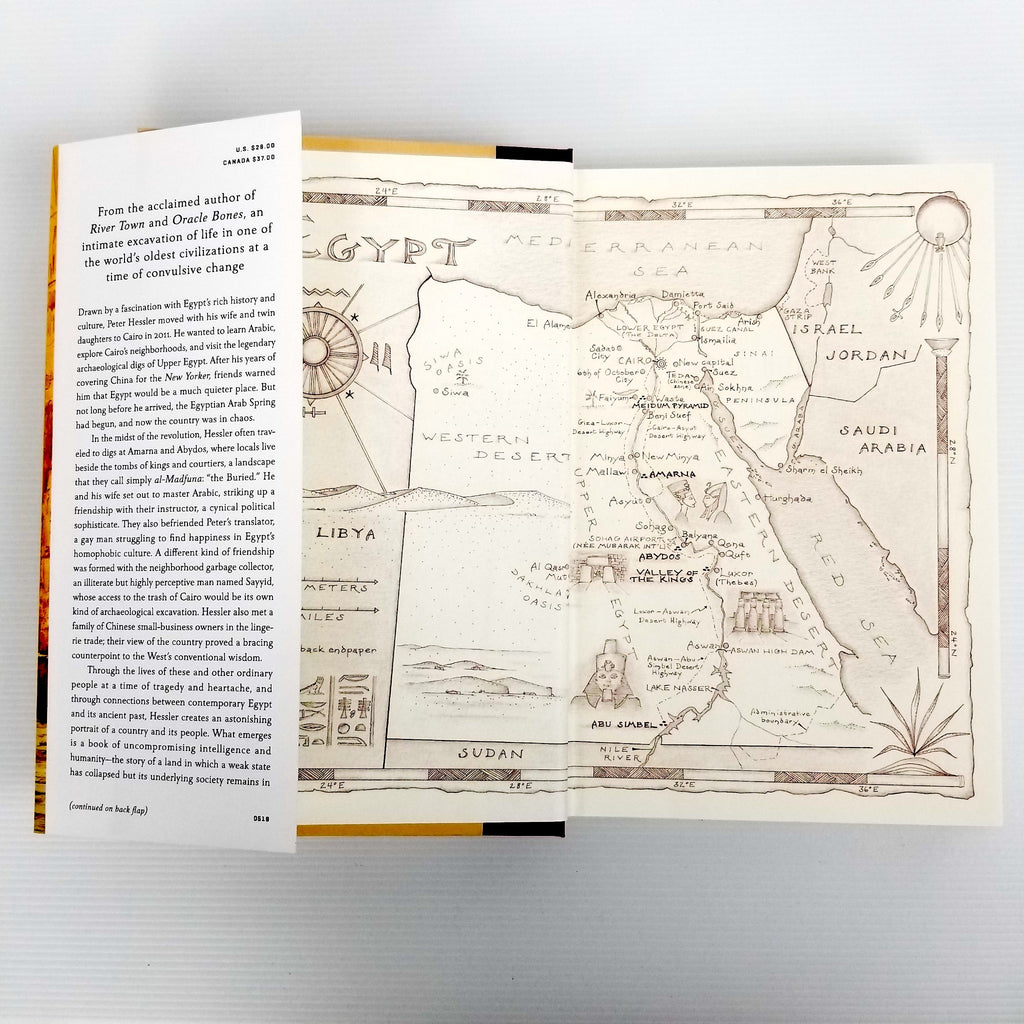 U.S. $28.00
CANADA $37.00
From the acclaimed author of
River Town and Oracle Bones, an
intimate excavation of life in one of
the world's oldest civilizations at a
time of convulsive change
Drawn by a fascination with Egypt's rich history and
culture, Peter Hessler moved with his wife and twin
daughters to Cairo in 2011. He wanted to learn Arabic,
explore Cairo's neighborhoods, and visit the legendary
archaeological digs of Upper Egypt. After his years of
covering China for the New Yorker, friends warned
him that Egypt would be a much quieter place. But
not long before he arrived, the Egyptian Arab Spring
had begun, and now the country was in chaos.
In the midst of the revolution, Hessler often trav-
eled to digs at Amarna and Abydos, where locals live
beside the tombs of kings and courtiers, a landscape
that they call simply al-Madfuna: "the Buried." He
and his wife set out to master Arabic, striking up a
friendship with their instructor, a cynical political
sophisticate. They also befriended Peter's translator,
a gay man struggling to find happiness in Egypt's
homophobic culture. A different kind of friendship
was formed with the neighborhood garbage collector,
an illiterate but highly perceptive man named Sayyid,
whose access to the trash of Cairo would be its own
kind of archaeological excavation. Hessler also met a
family of Chinese small-business owners in the linge-
rie trade; their view of the country proved a bracing
counterpoint to the West's conventional wisdom.
Through the lives of these and other ordinary
people at a time of tragedy and heartache, and
through connections between contemporary Egypt
and its ancient past, Hessler creates an astonishing
portrait of a country and its people. What emerges
is a book of uncompromising intelligence and
humanity—the story of a land in which a weak state
has collapsed but its underlying society remains in
(continued on back flap)
0519
24°E
28°E
32°E
36°E
EGYPT
MEDITERRANEAN
SEA
WEST
BANK
GAZA
STRIP
ISRAEL
JORDAN
SAUDI
ARABIA
Alexandria
Damietta
Port Said
El Alame
Arish
LOWER EGYPT
(The Delta)
SUEZ CANAL
Ismailia
Sadat
City
CAIRO
New Capital
SINAI
PENINSULA
6th of October
City
TEDA
(Chinese
zone)
Suez
Ain Sokhna
Faiyum
Wasta
MEIDUM PYRAMID
Beni Suef
Giza-Luxor
Desert Highway
Cairo-Asyut
Desert Highway
SIWA
OASIS
Siwa
WESTERN
DESERT
G. SUEZ
G. AQABA
Minya
New Minya
Mallawi
AMARNA
Sharm el Sheikh
Asyut
Hurghada
28°N
UPPER
EGYPT
EASTERN DESERT
RED SEA
LIBYA
Sohag
SOHAG AIRPORT
(NÉE MUBARAK INT'L)
Balyana
ABYDOS
Qena
Quft
VALLEY OF
THE KINGS
Luxor
(Thebes)
Al Qasr
Mut
DAKHLA
OASIS
METERS
MILES
back endpaper
Luxor-Aswan
Desert Highway
Aswan
ASWAN HIGH DAM
24°N
Aswan-Abu
Simbel Desert
Highway
LAKE NASSER
ABU SIMBEL
Administrative
boundary
SUDAN
NILE
RIVER
24°E
28°E
32°E
36°E